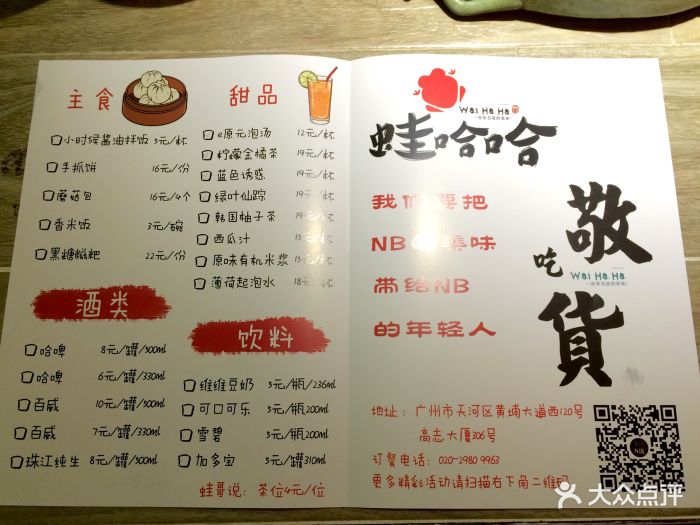 主食
小时候酱油拌饭 5元/杯
手抓饼 16元/份
蘑菇包 16元/4个
香米饭 3元/碗
黑糖糍粑 22元/份
甜品
e原元泡汤 12元/杯
柠檬金橘茶 19元/杯
蓝色诱惑 19元/杯
绿叶仙踪 19元/杯
韩国柚子茶
西瓜汁
原味有机米浆
薄荷起泡水
酒类
哈啤 8元/罐/500ml
哈啤 6元/罐/330ml
百威 10元/罐/500ml
百威 7元/罐/330ml
珠江纯生 8元/罐/500ml
饮料
维维豆奶 5元/瓶/236ml
可口可乐 5元/瓶200ml
雪碧 5元/瓶200ml
加多宝 5元/瓶310ml
蛙哥说: 茶位4元/位
Wai Ha Ha
蛙哈哈
我们要把
NB的臻味
带给NB
的年轻人
敬
吃
Wai Ha Ha
貨
地址: 广州市天河区黄埔大道西120号
高志大厦306号
订餐电话: 020-2980 9963
更多精彩活动请扫描右下角二维码
大众点评